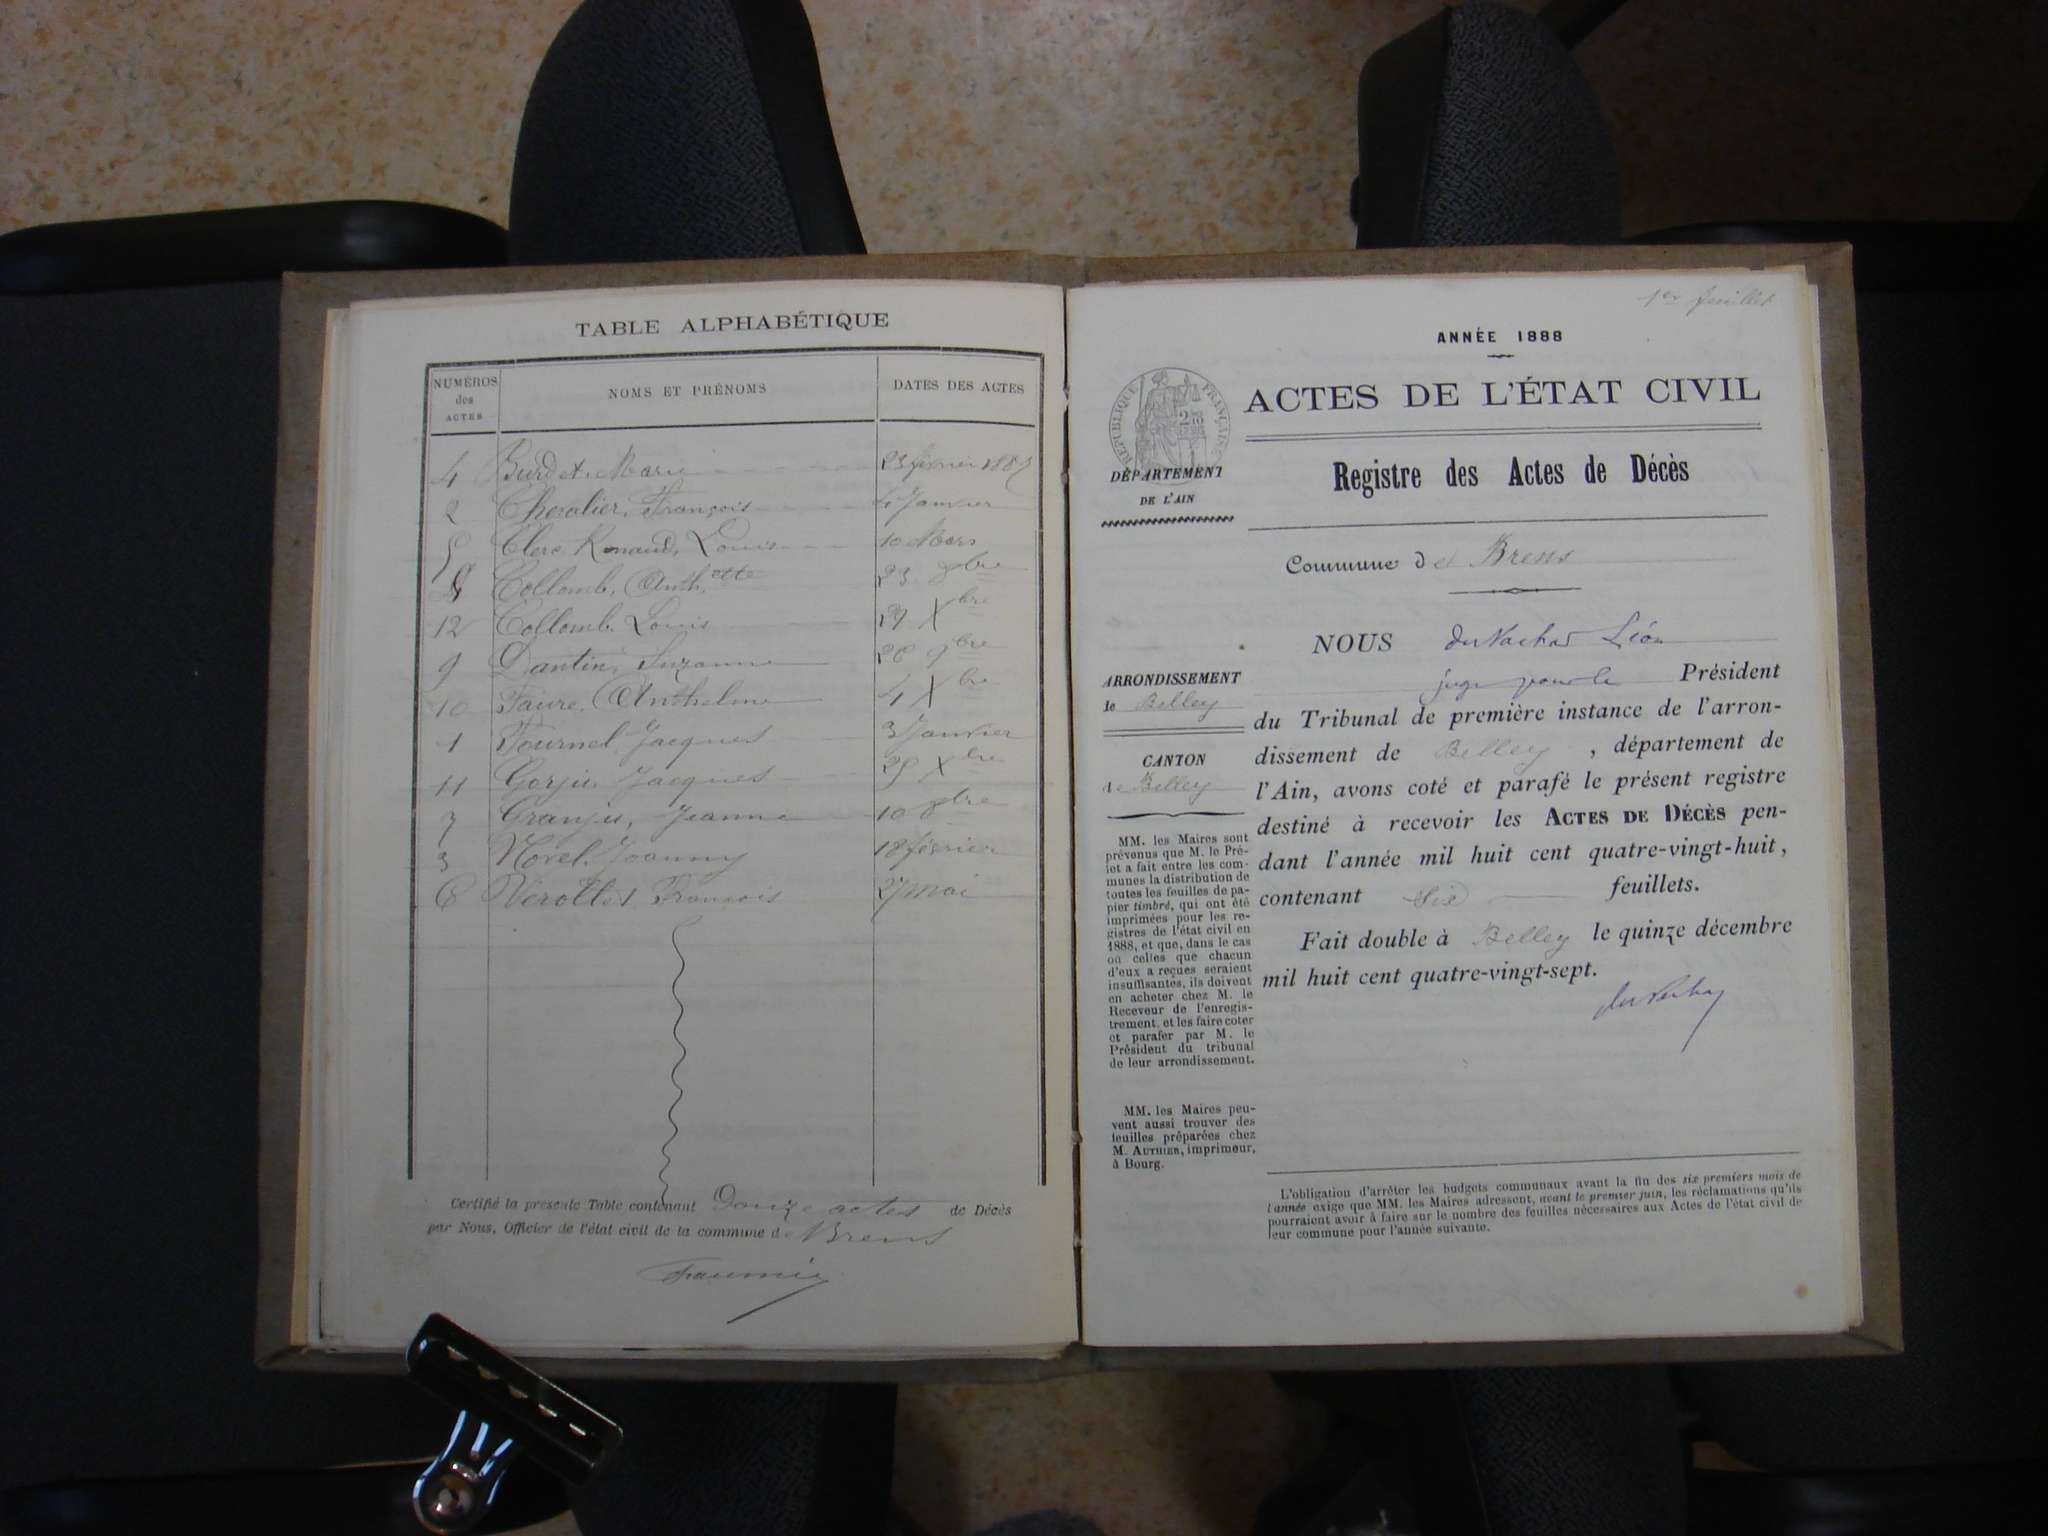 TABLE ALPHABÉTIQUE
NUMÉROS des ACTES
NOMS ET PRÉNOMS
DATES DES ACTES
4 Burdet Marie 23 février 1887
2 Chevalier, François 4 Janvier
5 Clerc Renaud, Louis 10 Mars
8 Collomb, Anth.ette 23 8bre
12 Collomb Louis 29 Xbre
9 Dantin, Suzanne 28 9bre
10 Faure, Anthelme 4 Xbre
1 Fournel, Jacques 3 Janvier
11 Gorju, Jacques 25 Xbre
7 Granju, Jeanne 10 8bre
3 Morel, Joanny 18 février
6 Verollet François 27 mai
Certifié la présente Table contenant Douze actes de Décès
par Nous, Officier de l'état civil de la commune de Brens
1er feuillet
ANNÉE 1888
RÉPUBLIQUE FRANÇAISE
ACTES DE L'ÉTAT CIVIL
DÉPARTEMENT
DE L'AIN
Registre des Actes de Décès
Commune de Brens
ARRONDISSEMENT
de Belley
CANTON
de Belley
MM. les Maires sont
prévenus que M. le Pré-
fet a fait entre les com-
munes la distribution de
toutes les feuilles de pa-
pier timbré, qui ont été
imprimées pour les re-
gistres de l'état civil en
1888, et que, dans le cas
où celles que chacun
d'eux a reçues seraient
insuffisantes, ils doivent
en acheter chez M. le
Receveur de l'enregis-
trement, et les faire coter
et parafer par M. le
Président du tribunal
de leur arrondissement.
MM. les Maires peu-
vent aussi trouver des
feuilles préparées chez
M. AUTHIER, imprimeur,
à Bourg.
NOUS Léon
juge pour le Président
du Tribunal de première instance de l'arron-
dissement de Belley, département de
l'Ain, avons coté et parafé le présent registre
destiné à recevoir les ACTES DE DÉCÈS pen-
dant l'année mil huit cent quatre-vingt-huit,
contenant Six feuillets.
Fait double à Belley le quinze décembre
mil huit cent quatre-vingt-sept.
L'obligation d'arrêter les budgets communaux avant la fin des six premiers mois de
l'année exige que MM. les Maires adressent, avant le premier juin, les réclamations qu'ils
pourraient avoir à faire sur le nombre des feuilles nécessaires aux Actes de l'état civil de
leur commune pour l'année suivante.